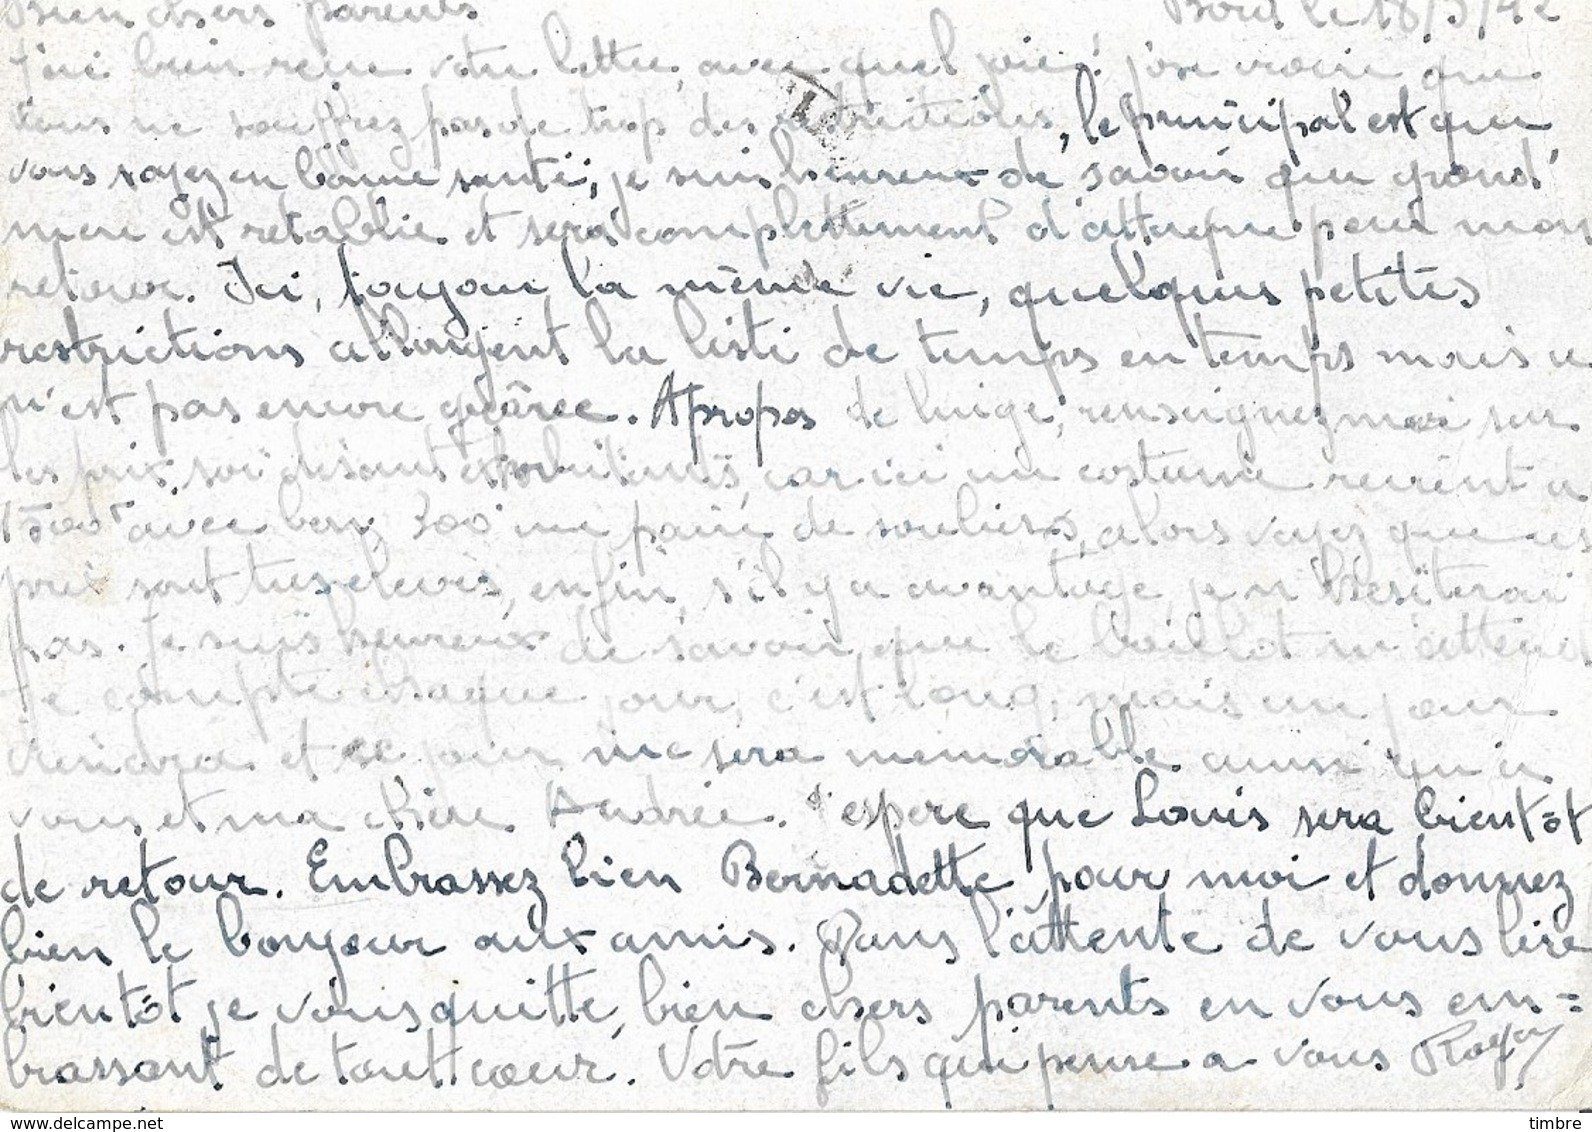 Bien chers parents Bord le 18/5/42
J'ai bien recue votre lettre, avec quel joie! j'ose croire que
vous ne souffrez pas de trop des restrictions, le principal est que
vous soyez en bonne santé, je suis heureux de savoir que grand'
mere est retablie et sera complettement d'attaque pour mon
retour. Ici, toujour la même vie, quelques petites
restrictions allongent la liste de temps en temps mais ce
n'est pas encore Apropos de linge, renseignez moi sur
les prix soi disant exhorbitants, car ici un costume revient a
1500f avec bon, 300 une paire de souliers, alors voyez que ces
prix sont tres eleves, enfin, s'il y a avantage, je n'hesiterai
pas. Je suis heureux de savoir que le m'attend
Je compte chaque jour, c'est long, mais un jour
viendra et ce jour me sera memorable ainsi qu'a
vous et ma chère Andrée. J'espere que Louis sera bientôt
de retour. Embrassez bien Bernadette pour moi et donnez
bien le bonjour aux amis. Dans l'attente de vous lire
bientôt je vous quitte, bien chers parents en vous em=
brassant de tout cœur. Votre fils qui pense a vous Roger
www.delcampe.net timbre